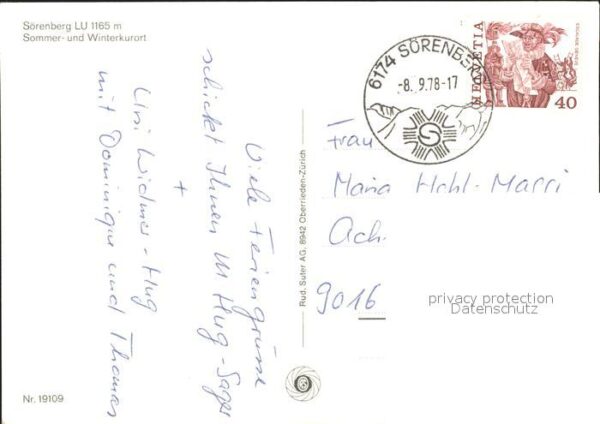 Sörenberg LU 1165 m
Sommer- und Winterkurort
Viele Feriengrüsse
schickt Ihnen M Hug-Sager
+
Uni Widmer-Hug
mit Dominique und Thomas
Rud. Suter AG, 8942 Oberrieden-Zürich
Nr. 19109
6174 SÖRENBERG
-8. 9.78-17
HELVETIA
40
Frau
Maria Hohl-Marri
Ach.
9016
privacy protection
Datenschutz